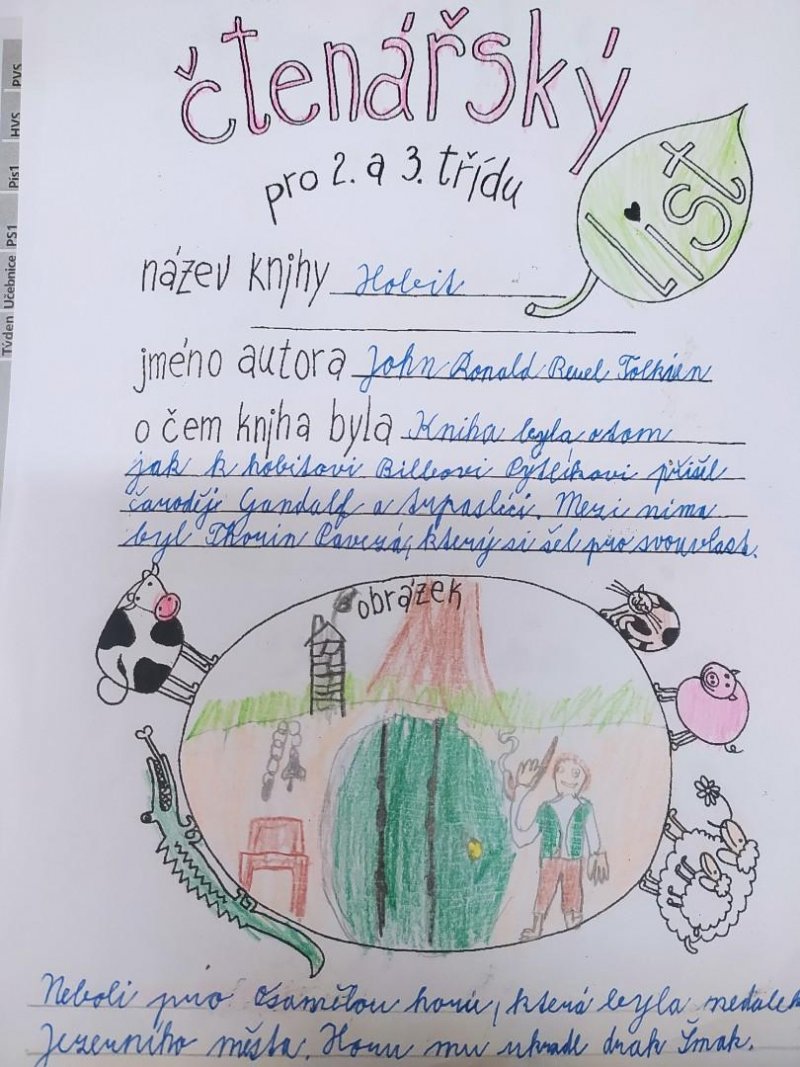 čtenářský
list
pro 2. a 3. třídu
název knihy Hobit
jméno autora John Ronald Reuel Tolkien
o čem kniha byla Kniha byla otom
jak k hobitovi Bilbovi Pytlíkovi přišel
čaroděje Gandalf a trpaslíci. Mezi nima
byl Thorin Pavéza, který si šel pro svou vlast.
obrázek
Neboli pro Osamělou horu, která byla nedalek
Jezerního města. Horu mu ukradl drak Šmak.
Týden Učebnice PS1 Pís1 HVS PVS